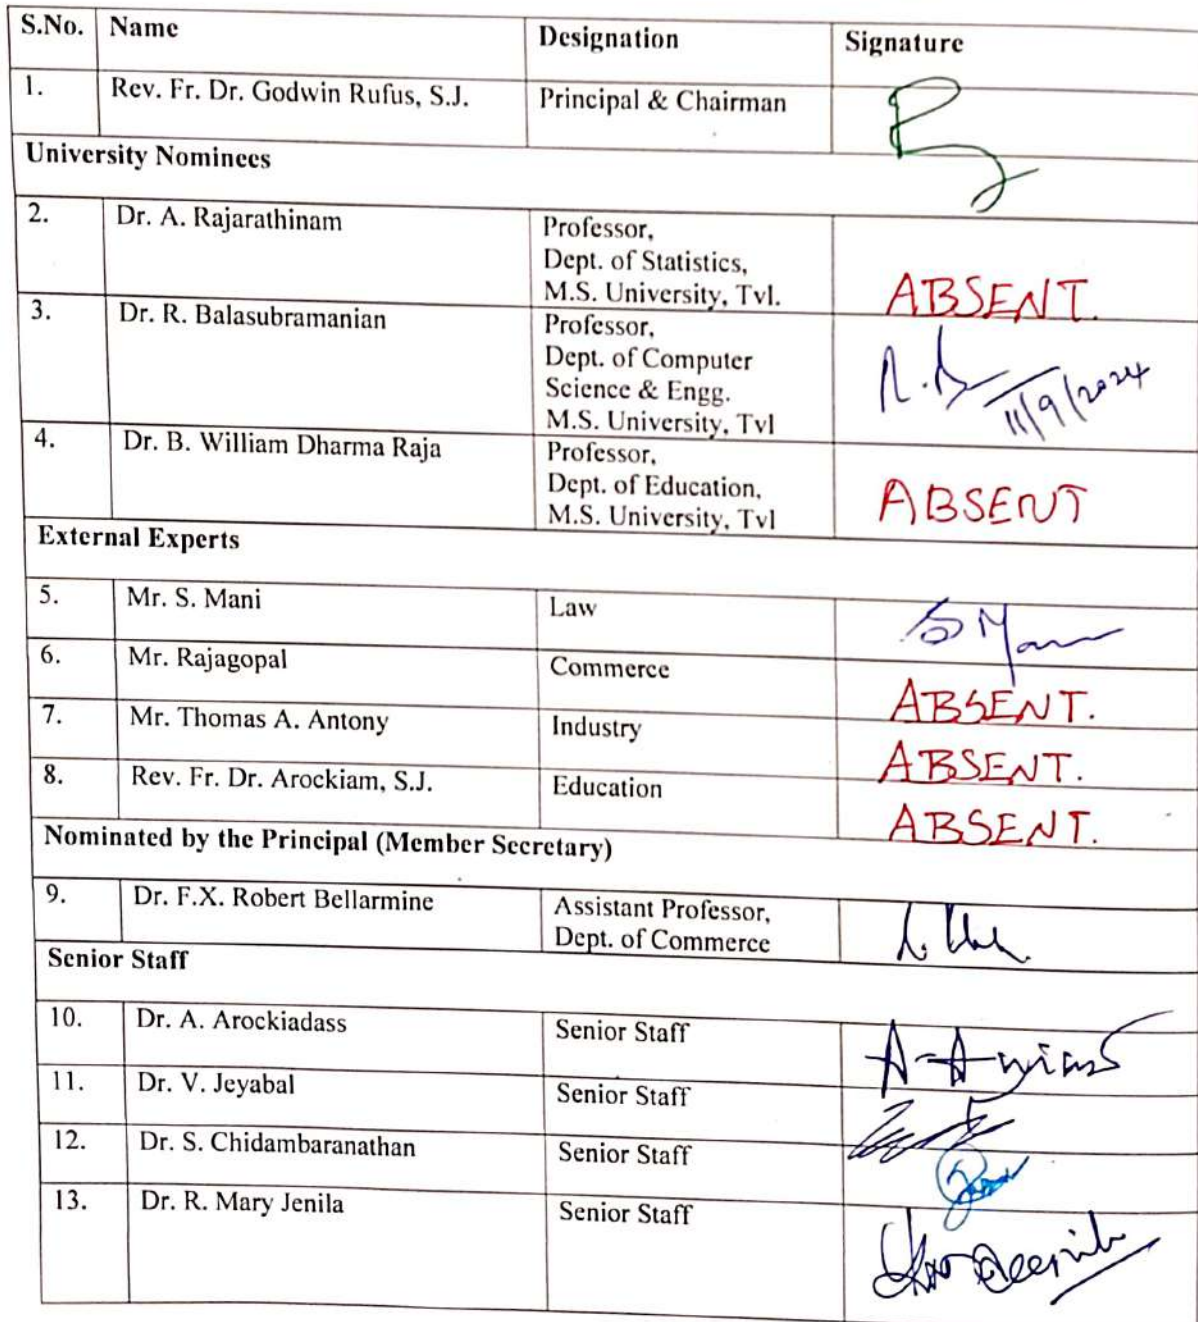 S.No. Name Designation Signature
1. Rev. Fr. Dr. Godwin Rufus, S.J. Principal & Chairman
University Nominees
2. Dr. A. Rajarathinam Professor,
Dept. of Statistics,
M.S. University, Tvl. ABSENT.
3. Dr. R. Balasubramanian Professor,
Dept. of Computer
Science & Engg. 11/9/2024
M.S. University, Tvl
4. Dr. B. William Dharma Raja Professor,
Dept. of Education, ABSENT
M.S. University, Tvl
External Experts
5. Mr. S. Mani Law
6. Mr. Rajagopal Commerce ABSENT.
7. Mr. Thomas A. Antony Industry ABSENT.
8. Rev. Fr. Dr. Arockiam, S.J. Education ABSENT.
Nominated by the Principal (Member Secretary)
9. Dr. F.X. Robert Bellarmine Assistant Professor,
Dept. of Commerce
Senior Staff
10. Dr. A. Arockiadass Senior Staff
11. Dr. V. Jeyabal Senior Staff
12. Dr. S. Chidambaranathan Senior Staff
13. Dr. R. Mary Jenila Senior Staff